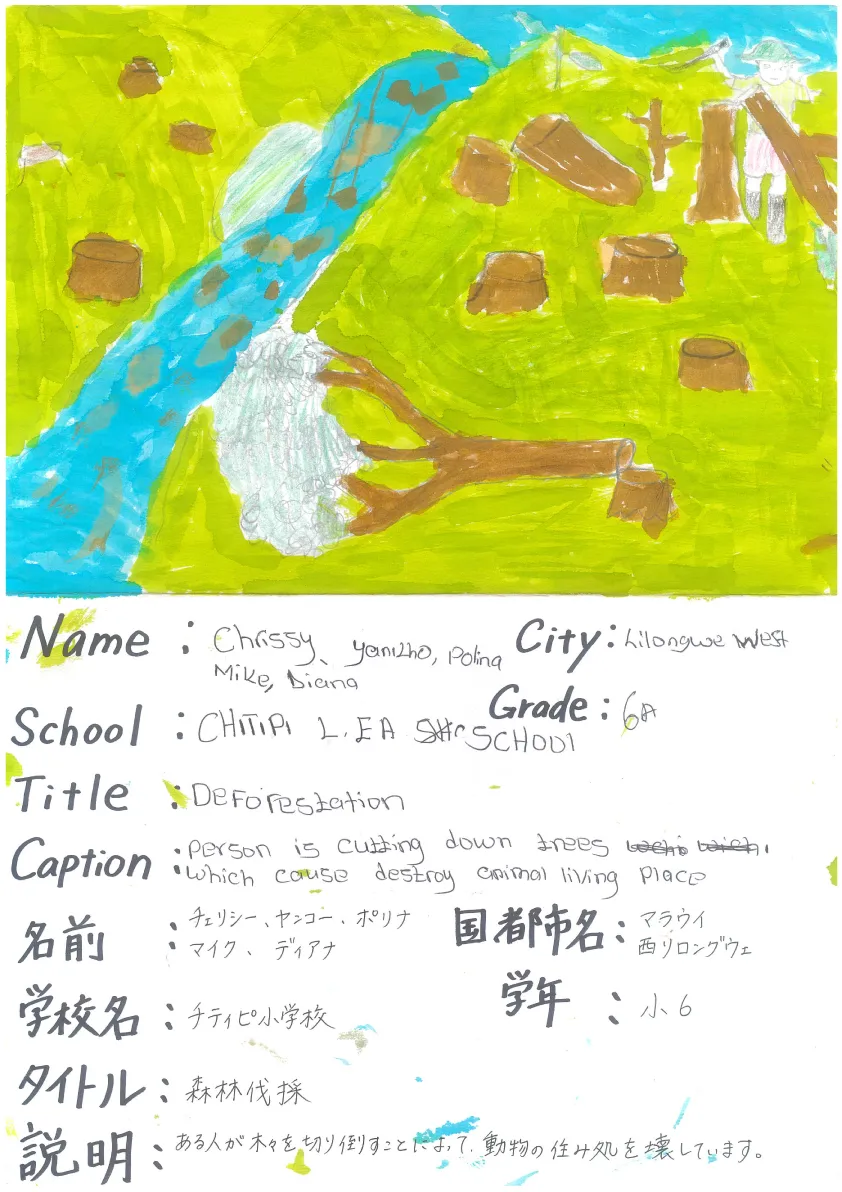 Name : Chrissy、Yanikho, Polina City : Lilongwe West
Mike, Diana
School : CHiTiPi L.EA SCHOOl Grade : 6A
Title : DeForestation
Caption : Person is cutting down trees
which cause destroy animal living place
名前 : チェリシー、ヤンコー、ポリナ 国都市名 : マラウイ
マイク、ディアナ 西リロングウェ
学校名 : チティピ小学校 学年 : 小6
タイトル : 森林伐採
説明 : ある人が木々を切り倒すことによって、動物の住み処を壊しています。